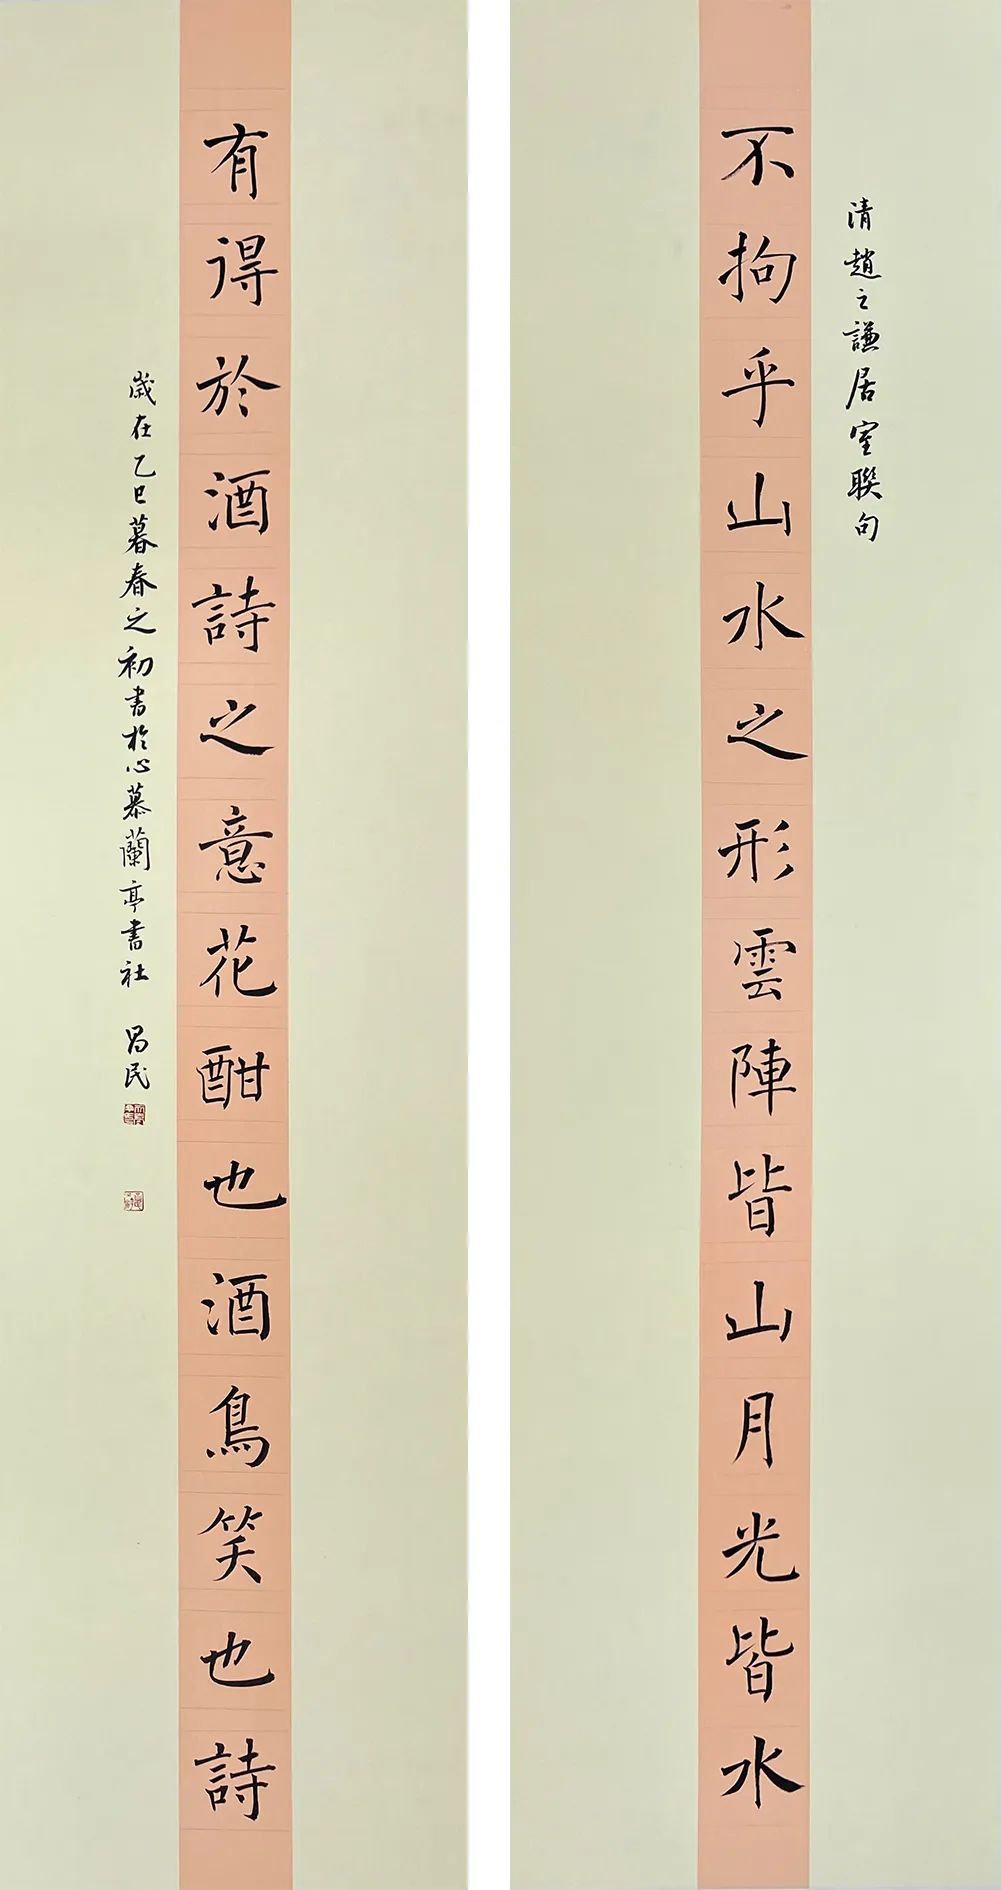 清趙之謙居室聯句
不拘乎山水之形雲陣皆山月光皆水
有得於酒詩之意花酣也酒鳥笑也詩
歲在乙巳暮春之初書於心慕蘭亭書社 昌民